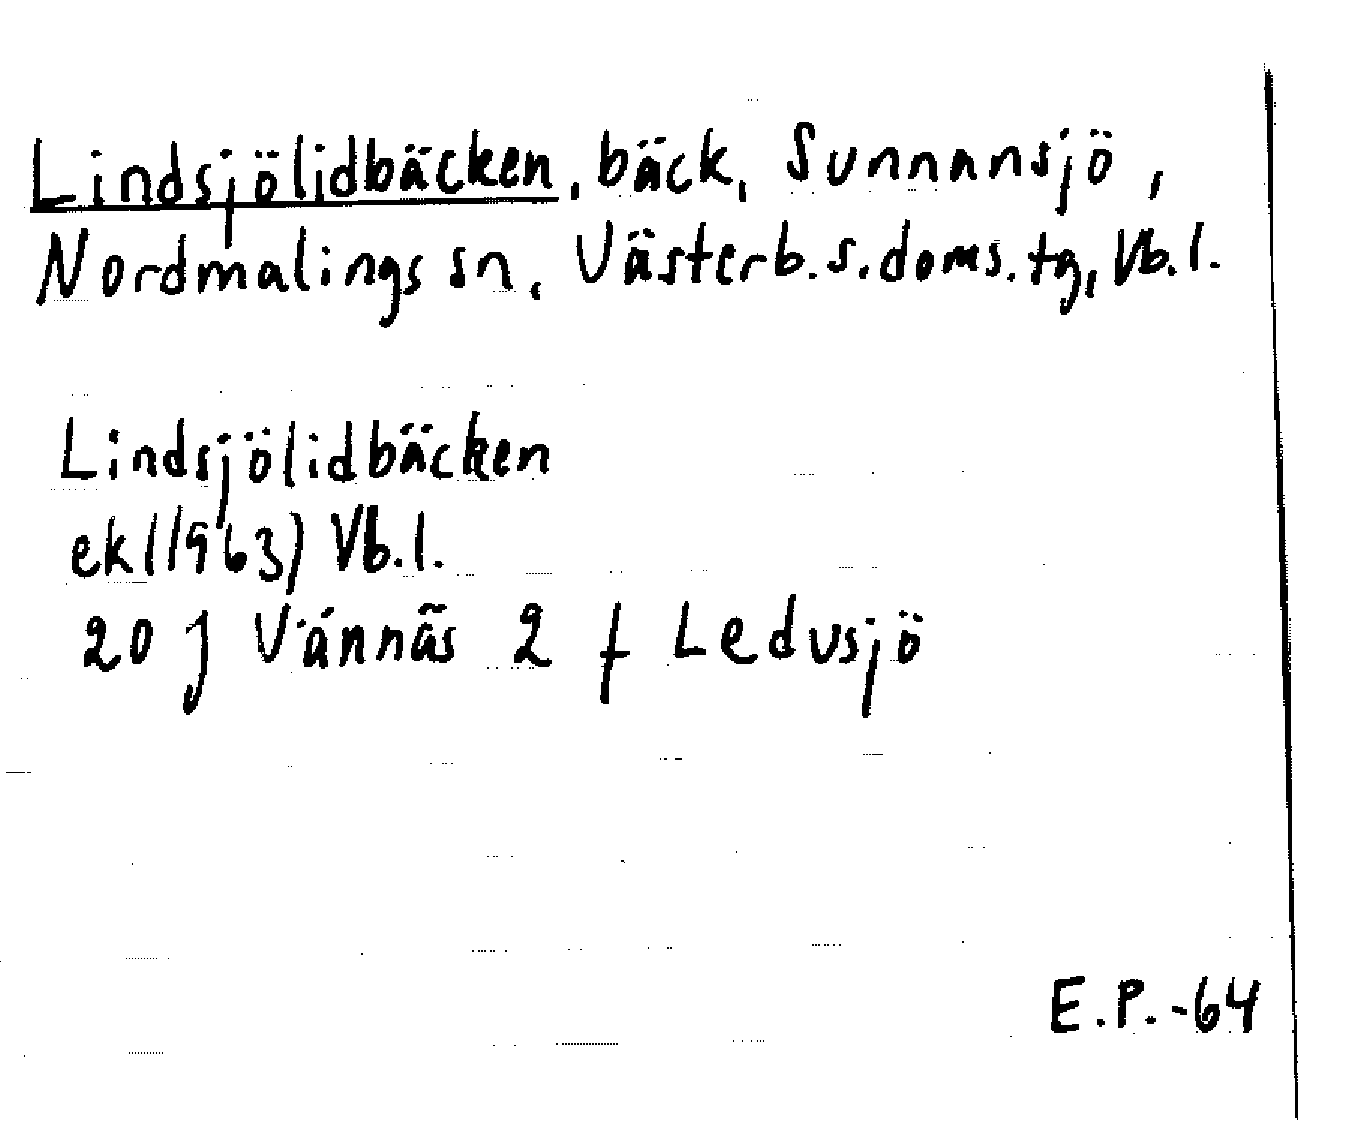 Lindsjölidbäcken, bäck, Sunnansjö,
Nordmalings sn, Västerb.s.doms.tg, Vb.l.
Lindsjölidbäcken
ek(1963) Vb.l.
20 J Vännäs 2 f Ledusjö
E.P.-64